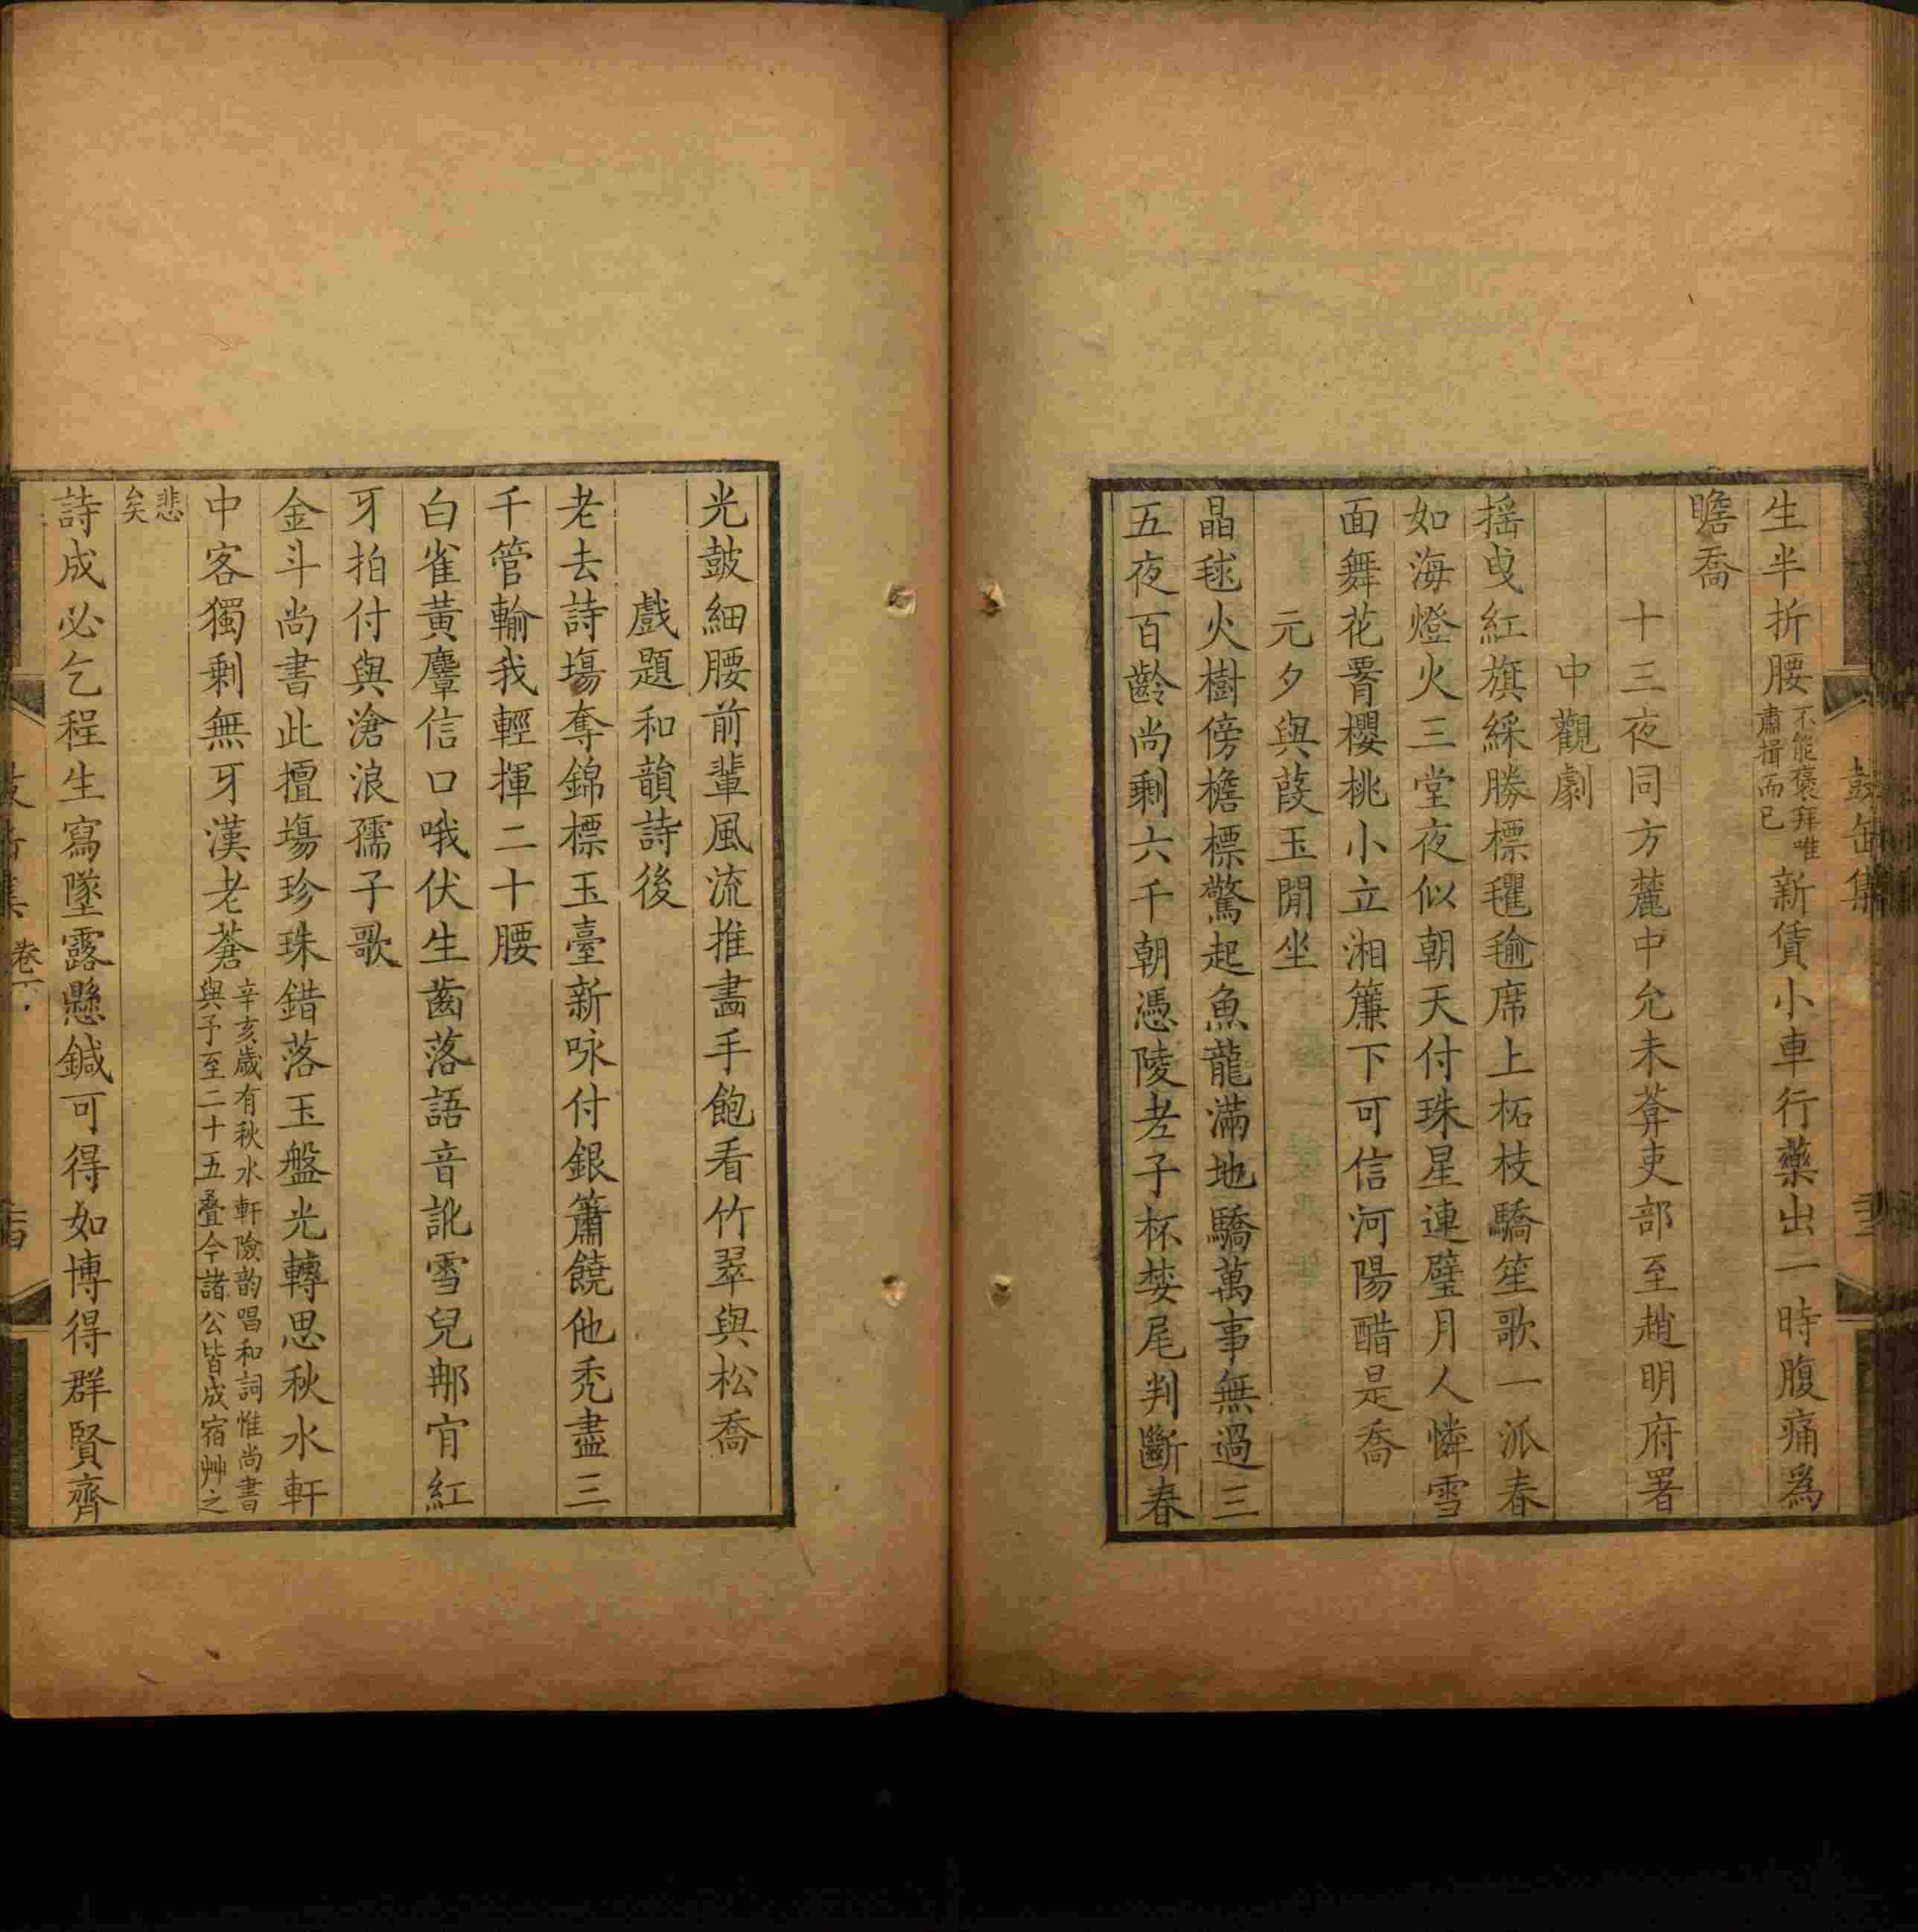 生半折腰不能褒拜唯肅揖而已新賃小車行藥出一時腹痛爲
瞻喬
十三夜同方麓中允未葊吏部至趙明府署
中觀劇
搖曳紅旗綵勝標氍毹席上柘枝驕笙歌一派春
如海燈火三堂夜似朝天付珠星連璧月人憐雪
面舞花罥櫻桃小立湘簾下可信河陽醋是喬
元夕與葭玉閒坐
晶毬火樹傍檐標驚起魚龍滿地驕萬事無過三
五夜百齡尚剩六千朝憑陵老子杯婪尾判斷春
光皷細腰前輩風流推畫手飽看竹翠與松喬
戲題和韻詩後
老去詩塲奪錦標玉臺新咏付銀簫饒他禿盡三
千管輸我輕揮二十腰
白雀黃麞信口哦伏生齒落語音訛雪兒那肎紅
牙拍付與滄浪孺子歌
金斗尚書此擅塲珍珠錯落玉盤光轉思秋水軒
中客獨剩無牙漢老蒼辛亥歲有秋水軒險韵唱和詞惟尚書與予至二十五叠今諸公皆成宿艸之
悲矣
詩成必乞程生寫墜露懸鍼可得如博得群賢齊